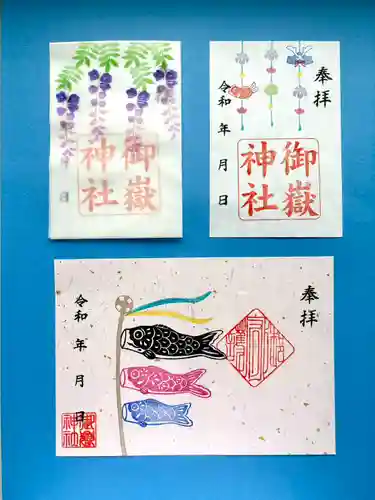 御嶽
神社
日
奉拝
令和 年 月 日
御嶽
神社
奉拝
令和 年 月 日
御嶽
神社